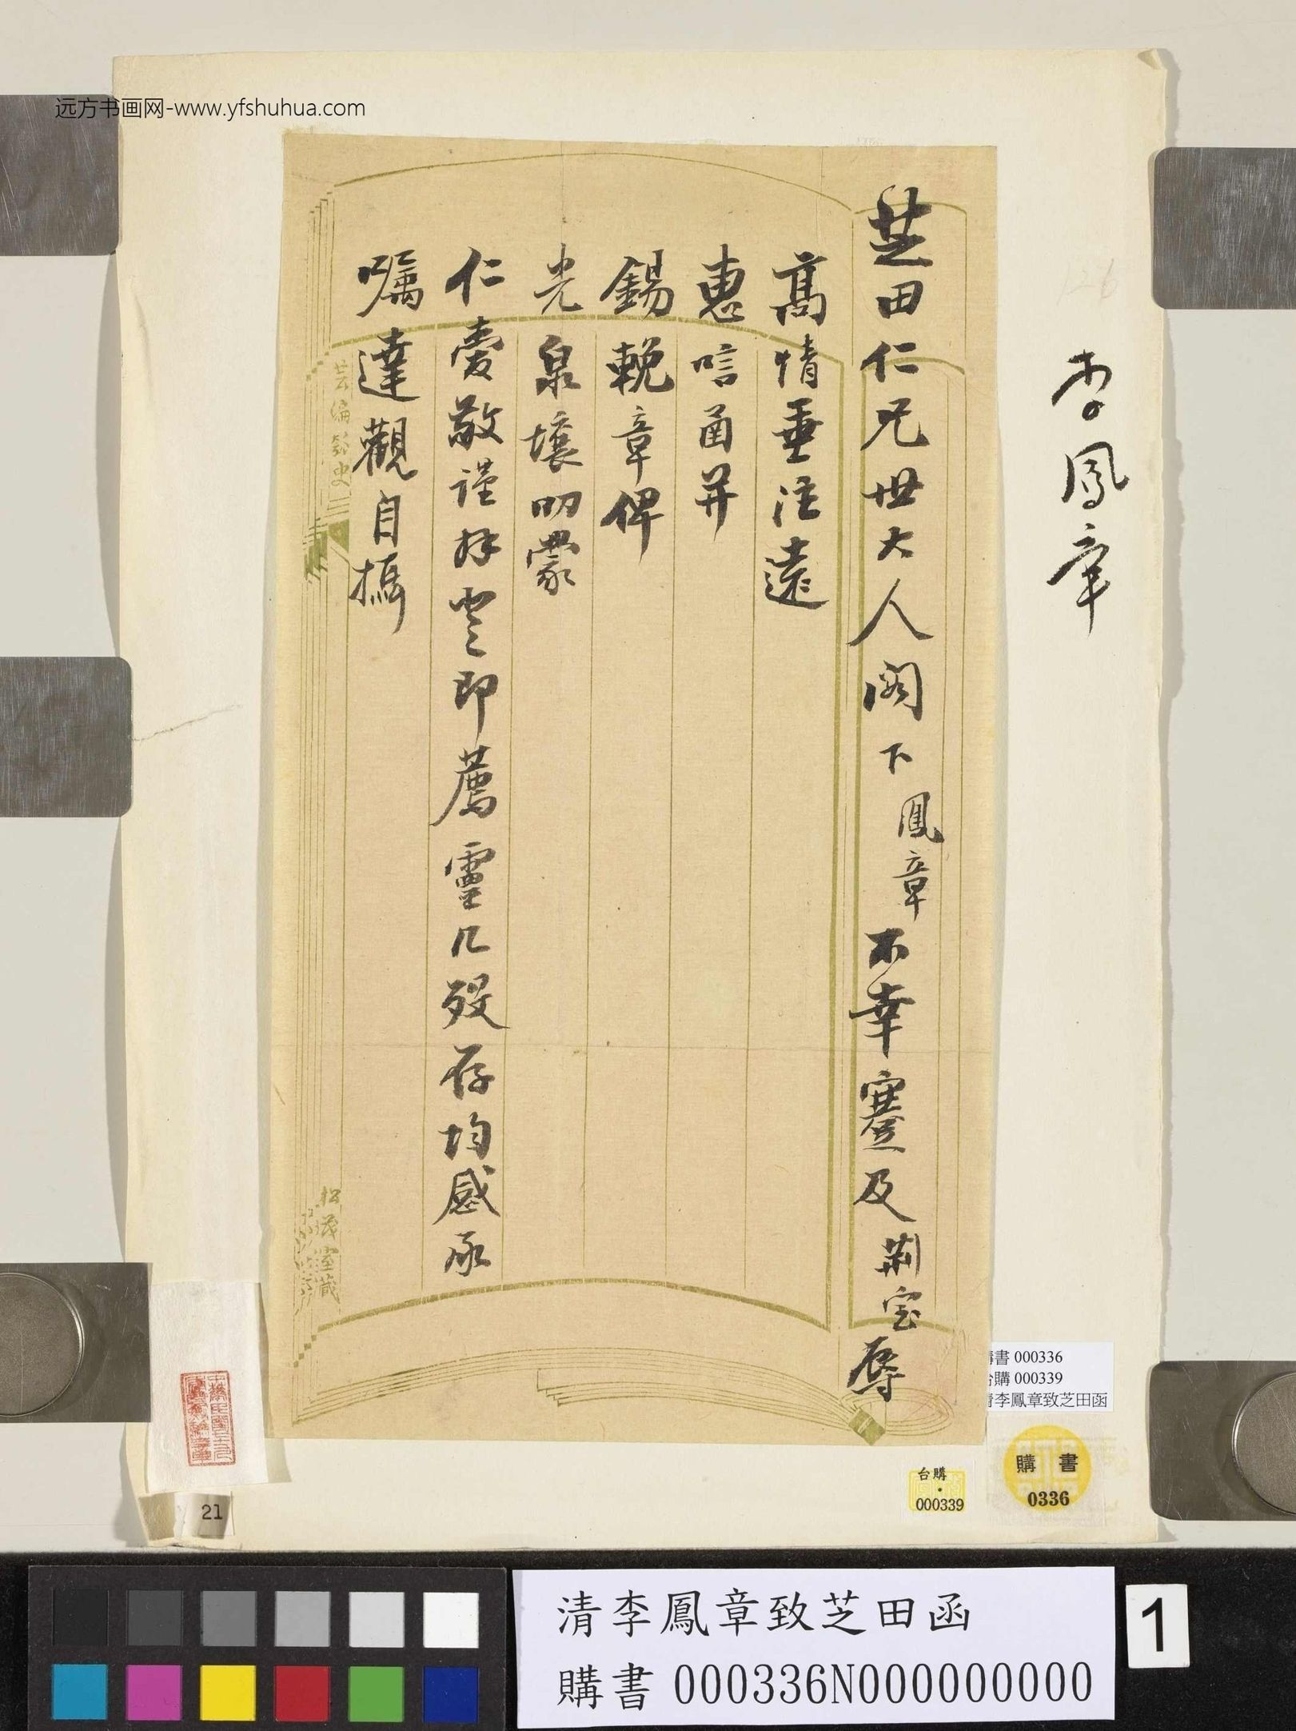 远方书画网-www.yfshuhua.com
李鳳章
芝田仁兄世大人閣下鳳章不幸蹇及荆室辱
高情垂注遠
惠唁函并
錫輓章俾
光泉壤叨蒙
仁愛敬謹拜登即薦靈几歿存均感承
嘱達觀自攝
芸編對史
松茂室藏
購書 000336
台購 000339
清李鳳章致芝田函
台購
000339
購書
0336
21
清李鳳章致芝田函
購書 000336N000000000
1